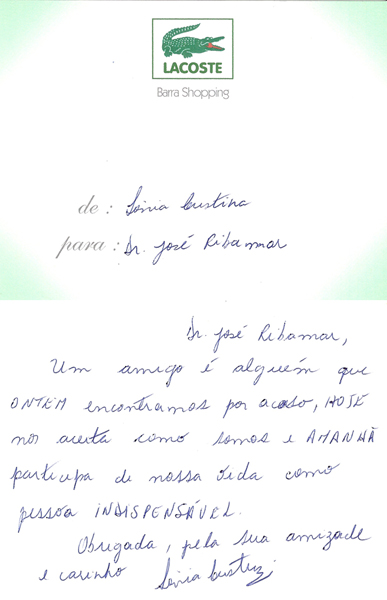 LACOSTE
Barra Shopping
de : Sônia Cristina
para : Dr. José Ribamar
Dr. José Ribamar,
Um amigo é alguém que
ONTEM encontramos por acaso, HOJE
nos aceita como somos e AMANHÃ
participa de nossa vida como
pessoa INDISPENSÁVEL.
Obrigada, pela sua amizade
e carinho Sônia Cristina